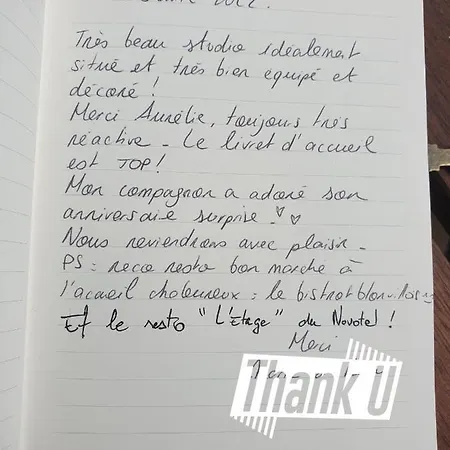 2022.
Très beau studio idéalement
situé et très bien equipé et
décoré !
Merci Aurélie, toujours très
réactive - Le livret d'accueil
est TOP!
Mon compagnon a adoré son
anniversaire surprise - ♡ ♡
Nous reviendrons avec plaisir -
PS : reco resto bon marché à
l'acueil chaleureux : le bistrot
Et le resto "L'Etage" du Novotel !
Merci
Thank U